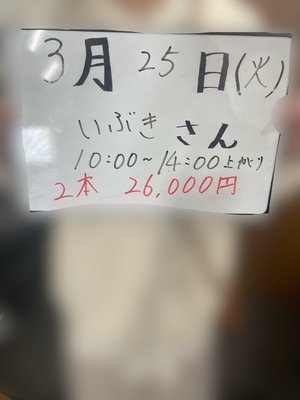 3月25日(火)
いぶきさん
10:00~14:00上がり
2本 26,000円